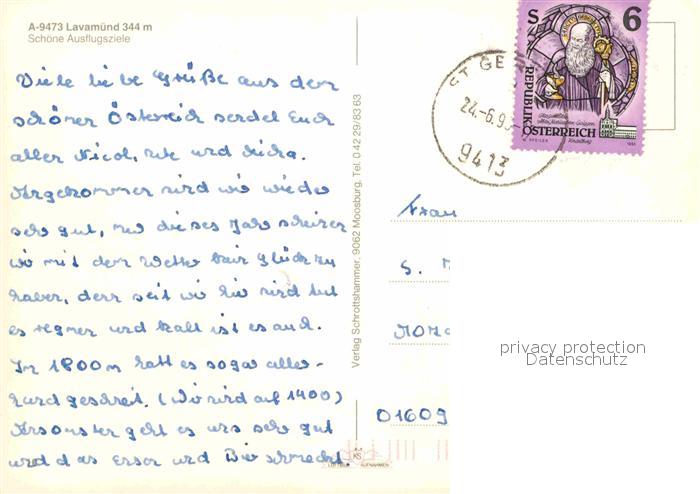 A-9473 Lavamünd 344 m
Schöne Ausflugsziele
Viele liebe Grüße aus dem
schönen Österreich sendet Euch
allen Nicol, und
Angekommen sind wir wieder
sehr gut, nur dieses Jahr scheinen
wir mit dem Wetter kein Glück zu
haben, denn seit wir hier sind tut
es regnen und kalt ist es auch.
In 1800 m hatt es sogar aller-
hand geschneit. (Wir sind auf 1400)
Ansonsten geht es uns sehr gut
und das Essen und Bier schmeckt.
Verlag Schrottshammer, 9062 Moosburg, Tel. 0 42 29/83 63
S 6
REPUBLIK
ÖSTERREICH
ST GE
24.-6.9
9413
Frau
S.
01609
KS
LUFTBILD AUFNAHMEN
privacy protection
Datenschutz